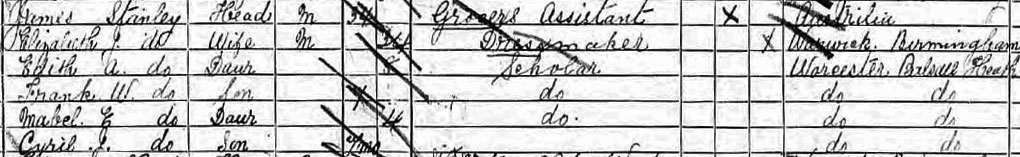 James Stanley Head M Grocers Assistant X Australia
Elizabeth J. do Wife M Dressmaker X Warwick. Birmingham
Edith A. do Daur Scholar Worcester Balsall Heath
Frank W. do Son do do do
Mabel. E do Daur 4 do. do do
Cyril J. do Son 7mo do do